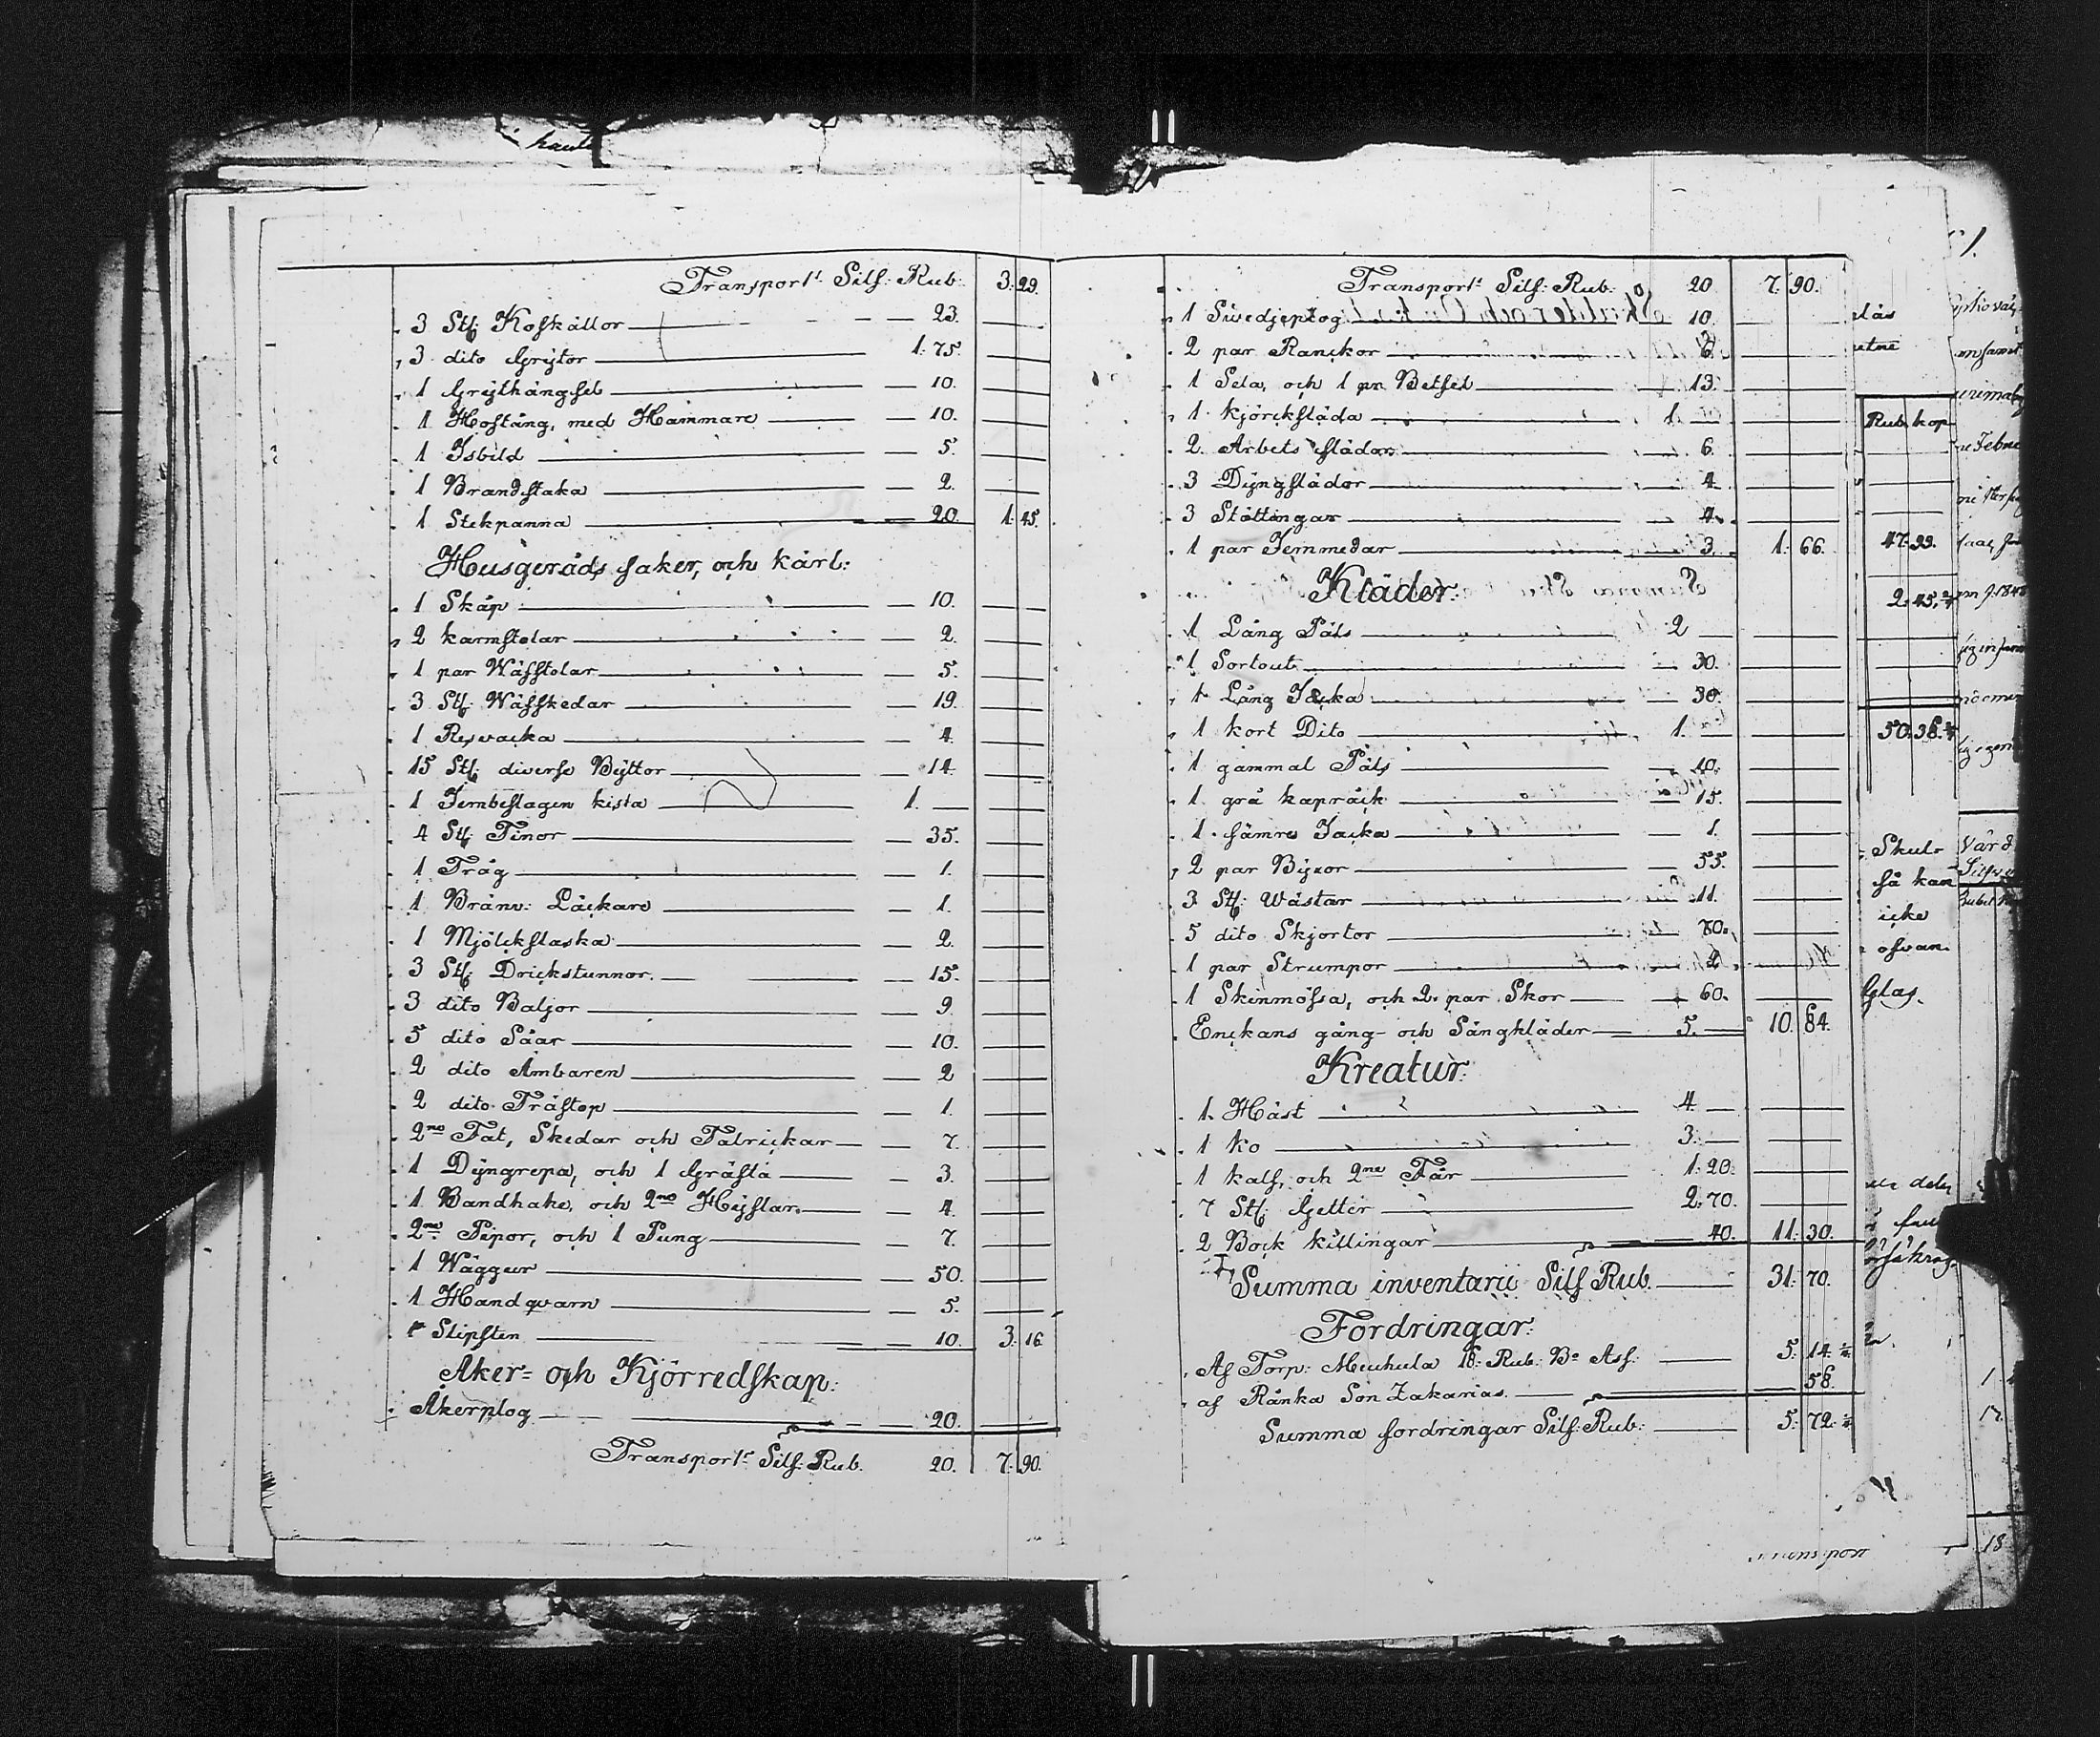 Transport: Silf: Rub: 3: 29.
3 St: Koskällor 23.
3 dito Grytor 1: 75.
1 Grythängsel 10.
1 Hoftång, med Hammare 10.
1 Isbild 5.
1 Brandstaka 2.
1 Stekpanna 20. 1: 45.
Husgeråds saker, och kärl:
1 Skåp 10.
2 karmstolar 2.
1 par Wäfstolar 5.
3 St: Wäfskedar 19.
1 Resvacka 4.
15 St: diverse Byttor 14.
1 Jernbeslagen kista 1.
4 St: Tinor 35.
1 Tråg 1.
1 Bränv: Läckare 1.
1 Mjölckflaska 2.
3 St: Drickstunnor 15.
3 dito Baljor 9.
5 dito Såar 10.
2 dito Ämbaren 2
2 dito Trästop 1.
2ne Fat, Skedar och Talrickar 7.
1 Dyngrepa, och 1 Gräfta 3.
1 Bandhake, och 2ne Hyflar 4.
2ne Pipor, och 1 Pung 7.
1 Wäggur 50.
1 Handqvarn 5.
1 Slipsten 10. 3: 16
Åker= och Kjörredskap:
Åkerplog 20.
Transport: Silf: Rub. 20. 7: 90.
Transport: Silf: Rub: 20 7: 90.
1 Swedjeplog 10.
2 par Ranckor 6.
1 Sela, och 1 pr Betsel 13.
1 kjörcksläda 1.
2 Arbets slädar 6.
3 Dyngslädor 4
3 Stöttingar 4.
1 par Jernmedar 3. 1: 66.
Kläder:
1 Lång Päls 2
1 Sortout 30.
1 Lång Jacka 30.
1 kort Dito 1.
1 gammal Päls 10.
1 grå kapräck 15.
1 sämre Jacka 1.
2 par Byxor 55.
3 St: Wästar 11.
5 dito Skjortor 70.
1 par Strumpor 2.
1 Skinmössa, och 2 par Skor 60.
Enckans gång- och Sängkläder 5. 10: 84.
Kreatur:
1 Häst 4.
1 ko 3.
1 kalf, och 2ne Får 1: 20.
7 St: Getter 2: 70.
2 Bock killingar 40. 11: 30.
Summa inventarii Silf Rub. 31: 70.
Fordringar:
Af Torp: Meukula 18: Rub: Bo Ass: 5: 14
af Ränka Son Zakarias 58.
Summa fordringar Silf: Rub: 5: 72
Rub. kop
47: 99.
2: 45
50: 38
Skul-
så kan
icke
ofvan.
Glas.